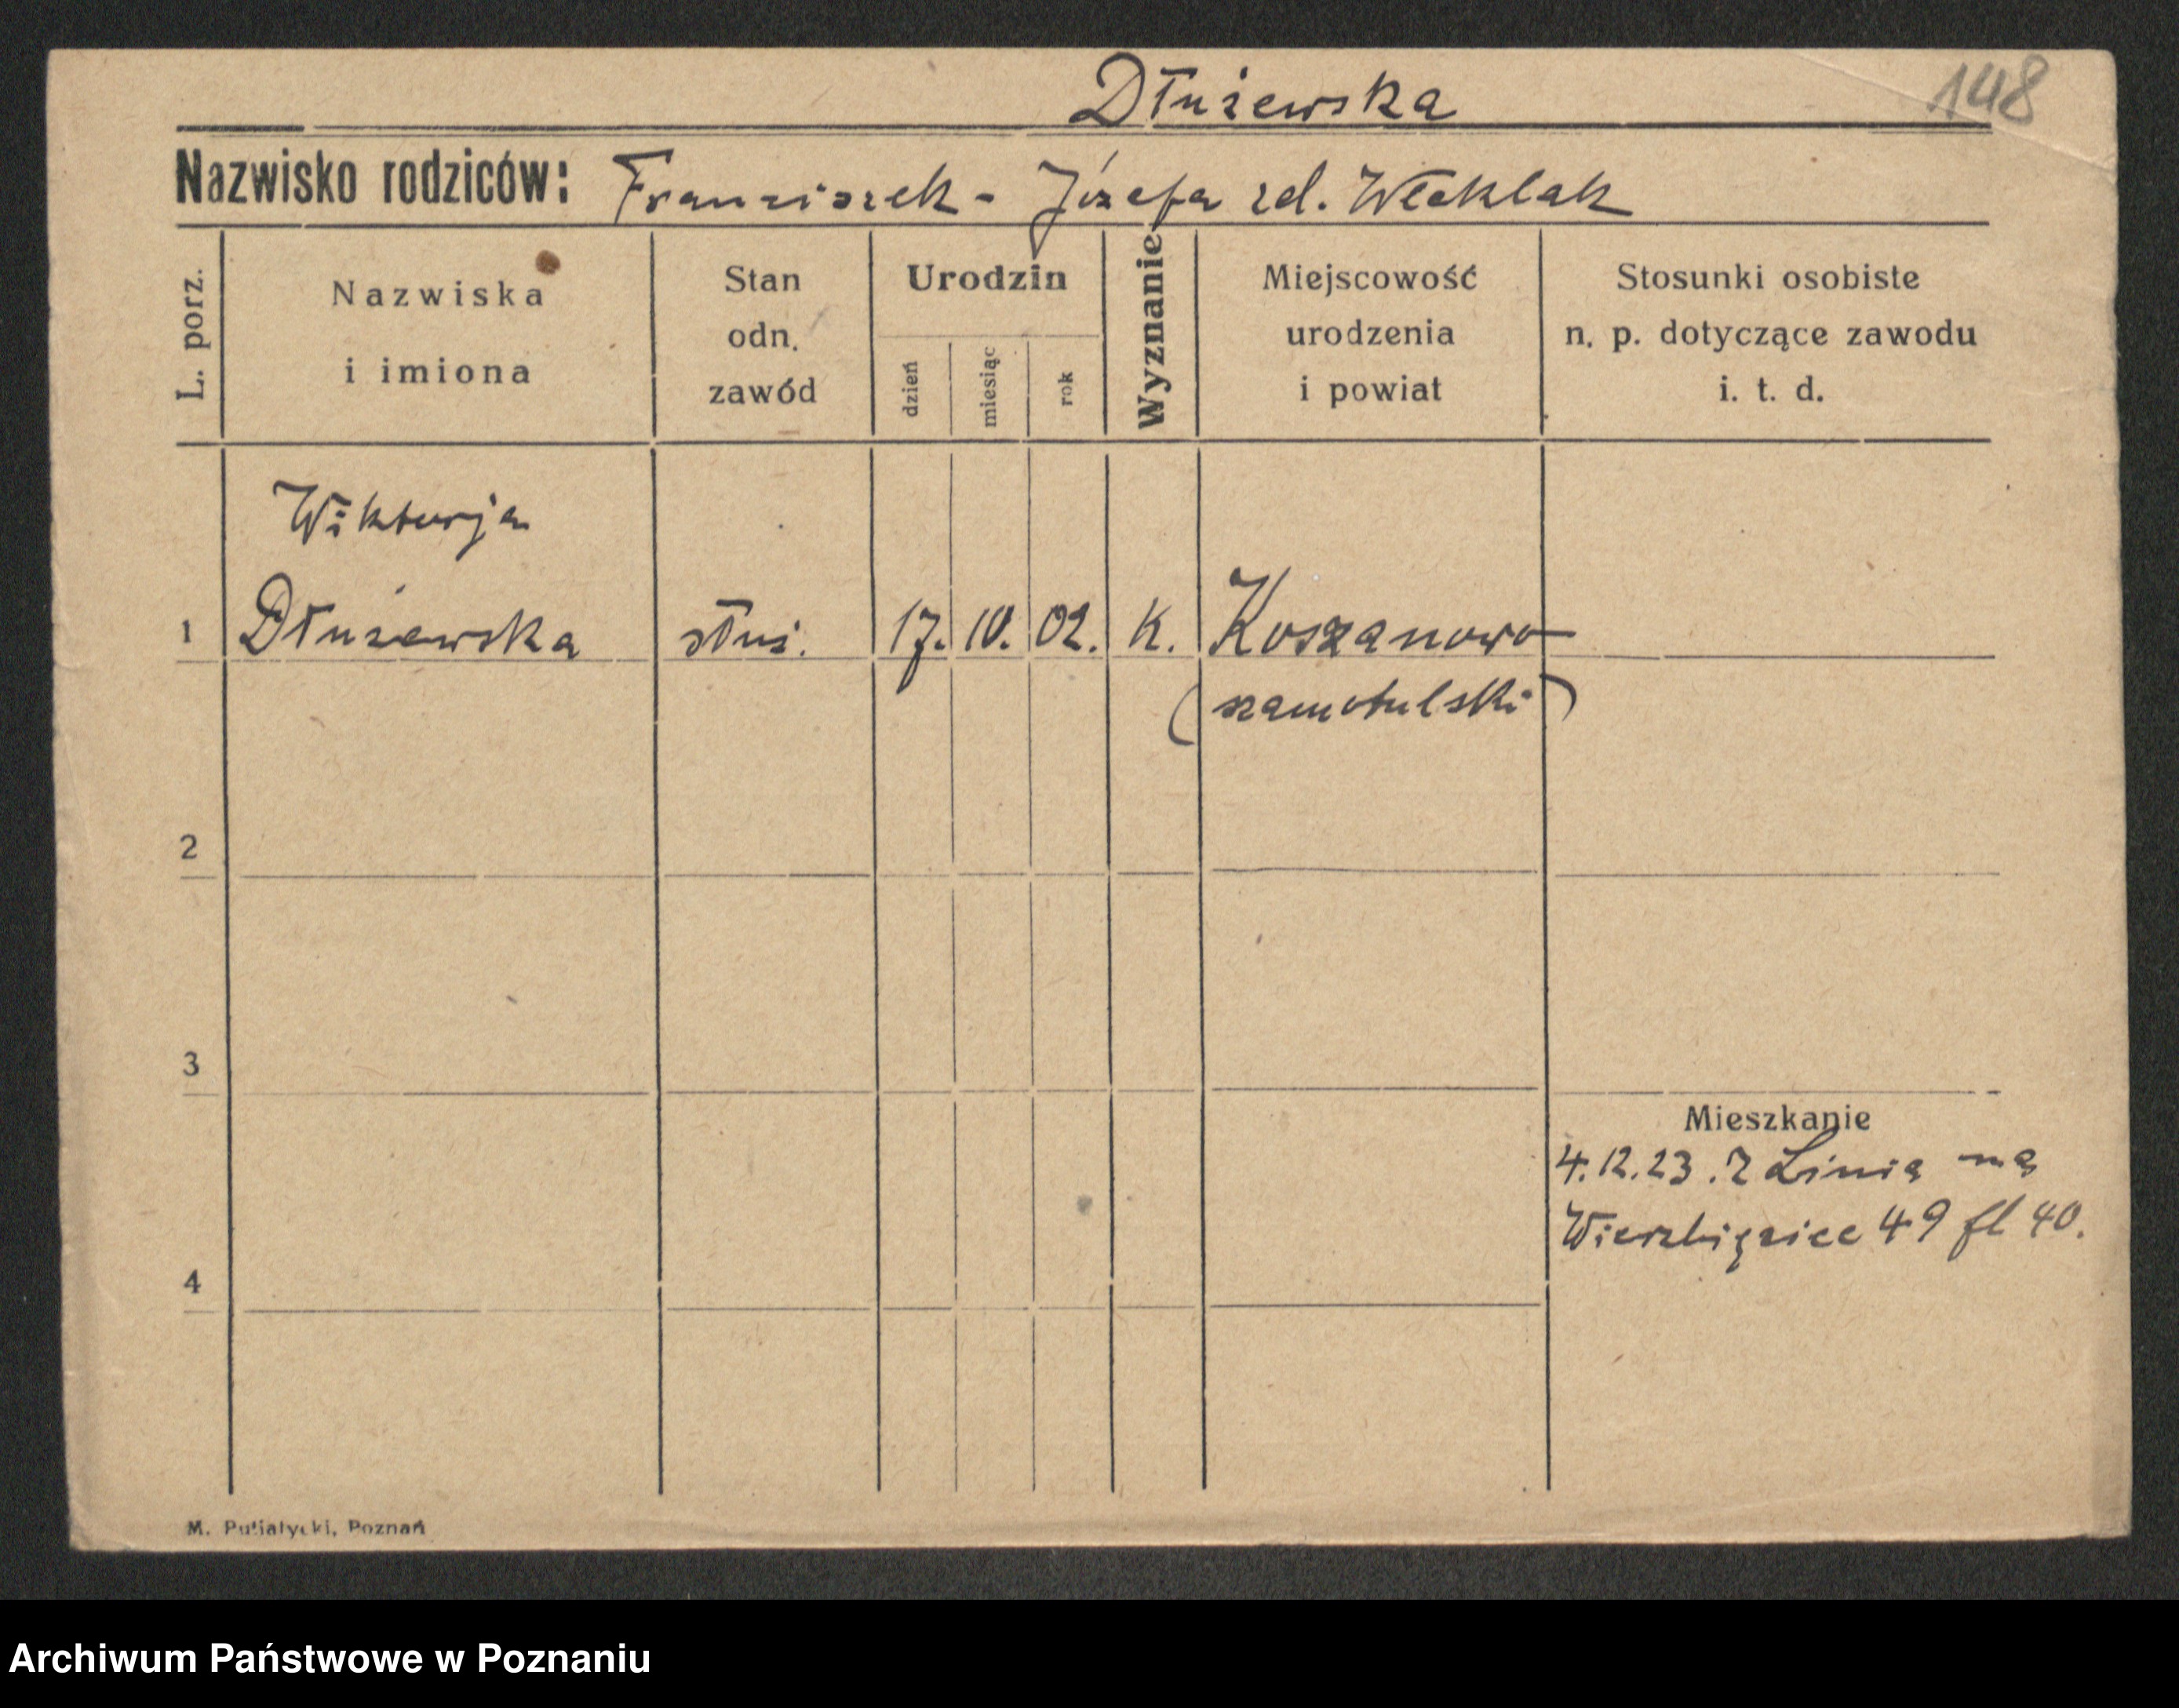 Dłużewska
148
Nazwisko rodziców: Franciszek - Józefa zd. Weklak
L. porz.
Nazwiska i imiona
Stan odn. zawód
Urodzin
dzień
miesiąc
rok
Wyznanie
Miejscowość urodzenia i powiat
Stosunki osobiste n. p. dotyczące zawodu i. t. d.
Wiktorja
1 Dłużewska służ. 17. 10. 02. K. Koszanowo
(szamotulski)
2
3
Mieszkanie
4.12.23. z Linią na
Wierzbięcice 49 fl 40.
4
M. Putiatycki, Poznań
Archiwum Państwowe w Poznaniu